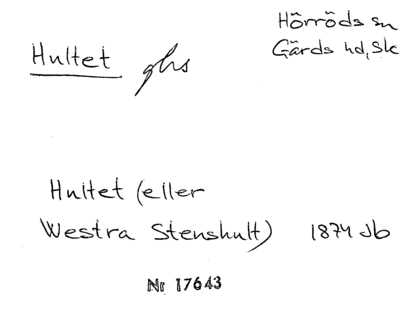 Hultet ghs
Hörröds sn
Gärds hd, Sk
Hultet (eller
Westra Stenshult) 1874 Jb
Nr 17643